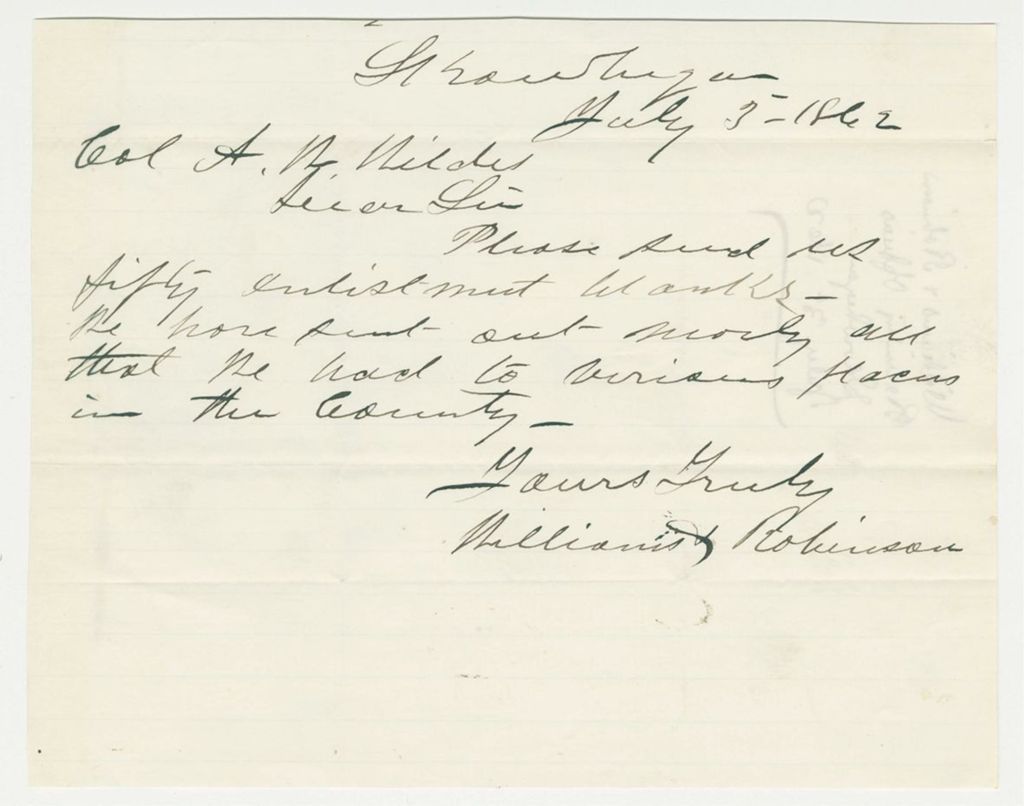 Skowhegan
July 5-1862
Col A. W. Wildes
Dear Sir
Please send us
fifty enlistment blanks-
We have sent out nearly all
that We had to various places
in the County-
Yours Truly
Williams & Robinson